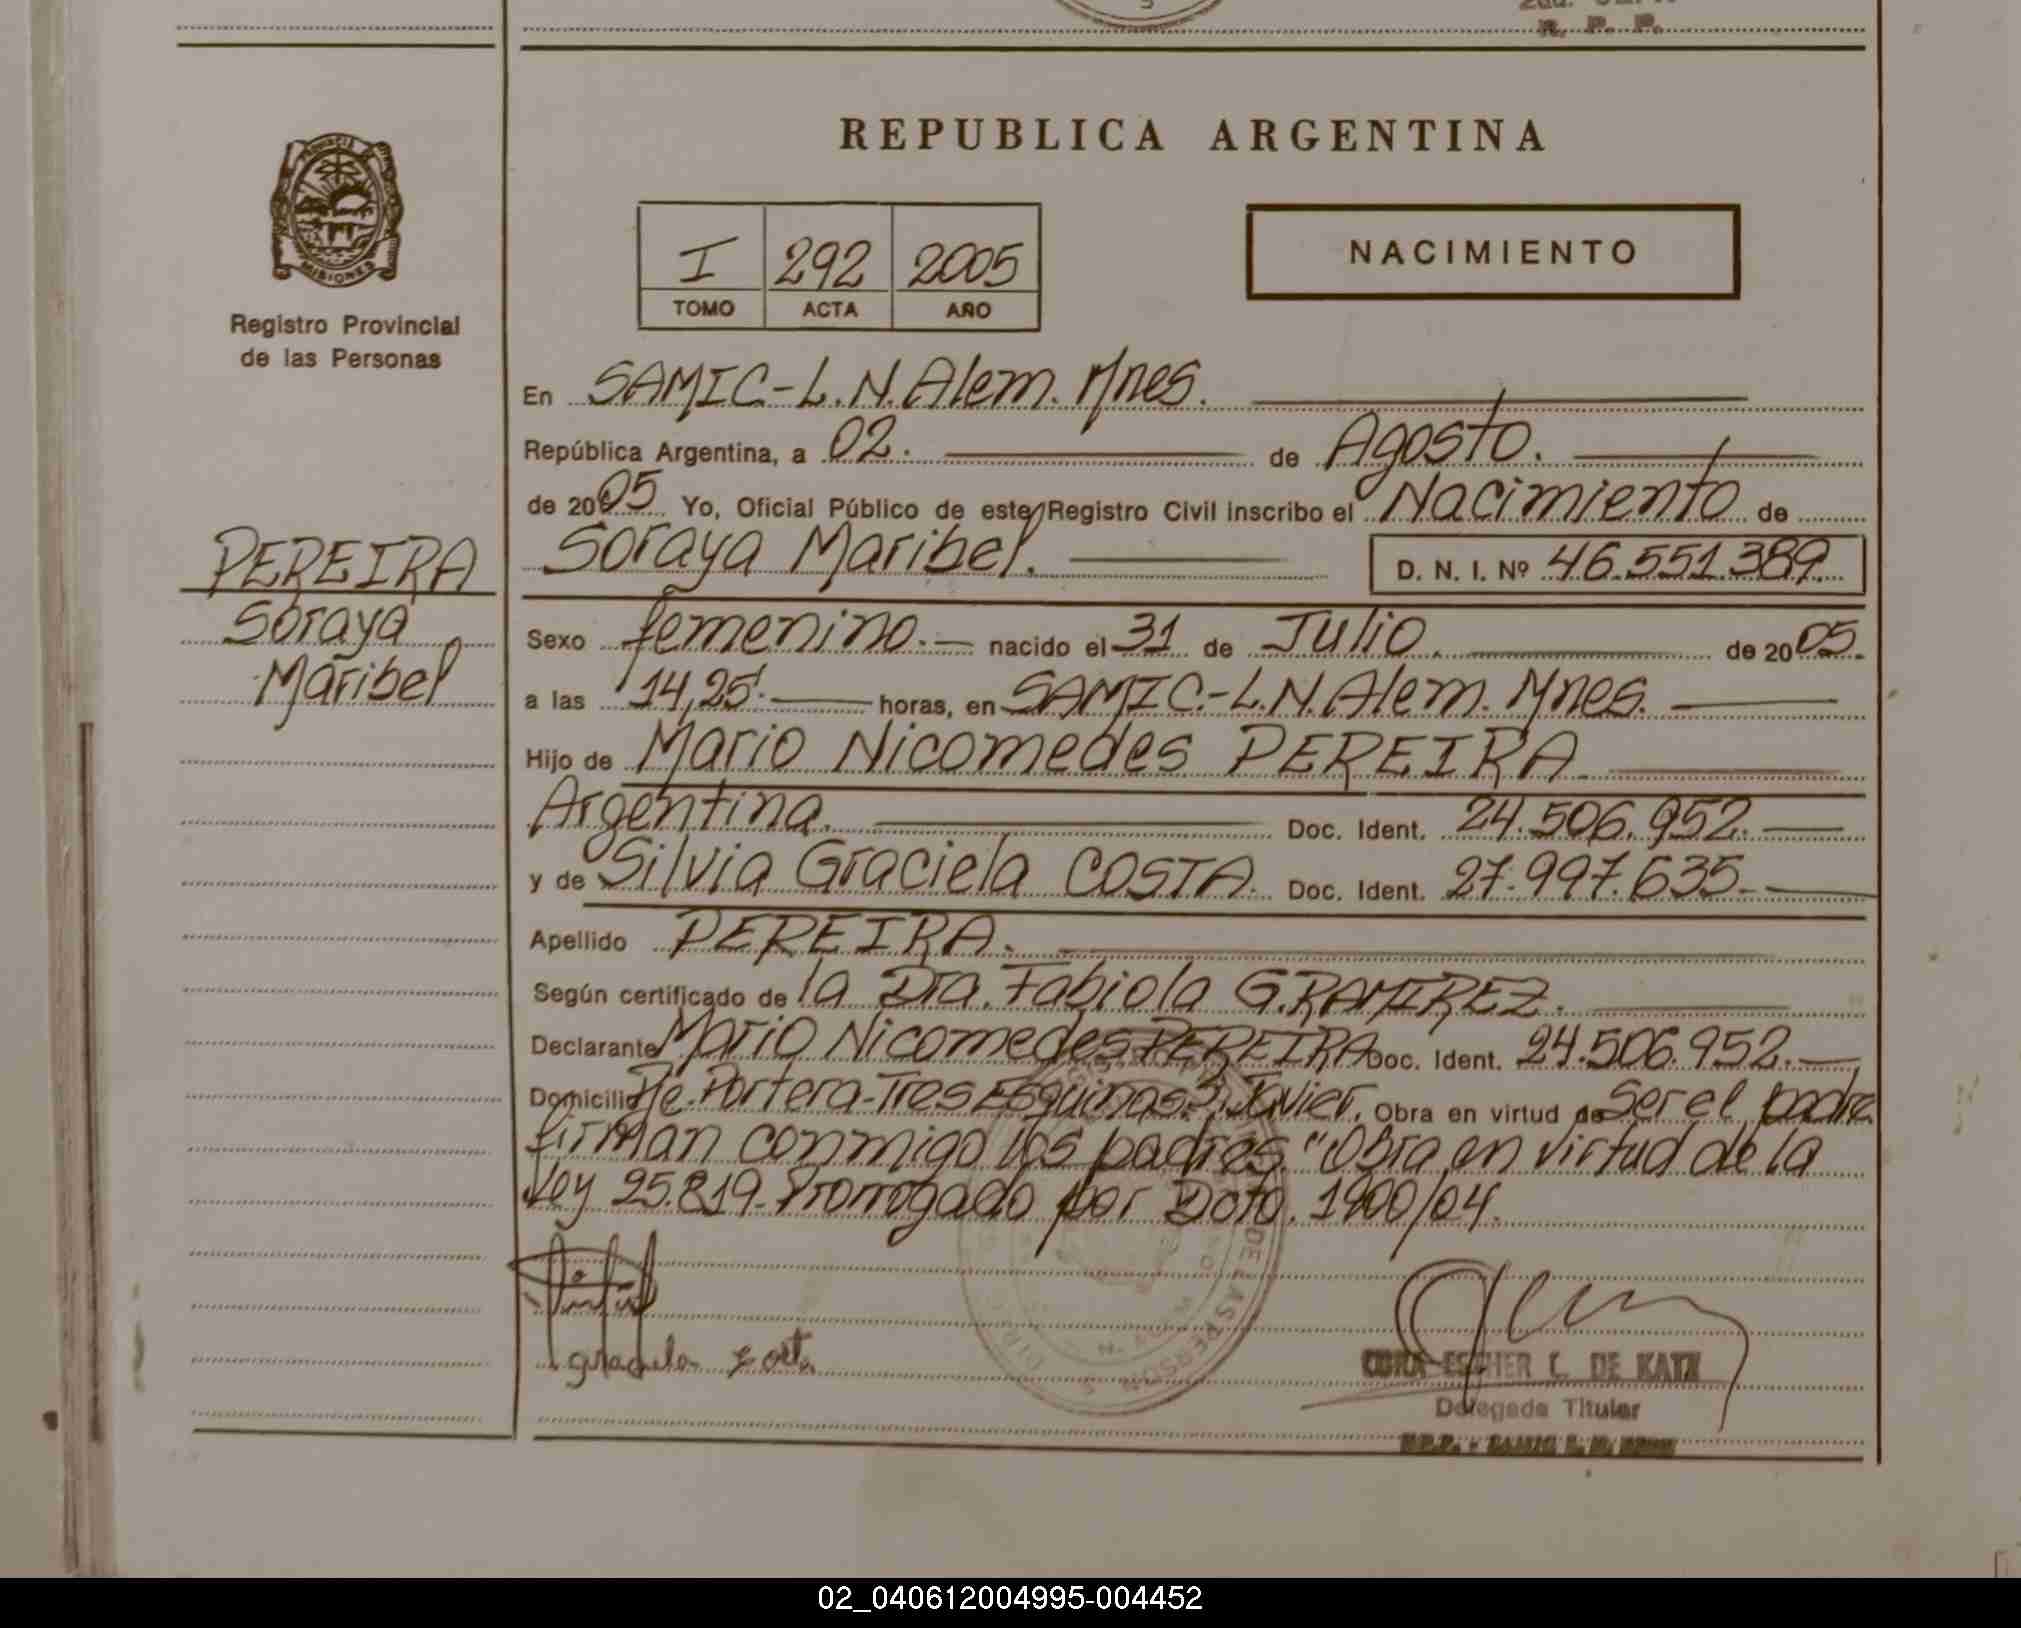 R. P. P.
REPUBLICA ARGENTINA
PROVINCIA DE
MISIONES
Registro Provincial
de las Personas
I 292 2005
TOMO ACTA AÑO
NACIMIENTO
En SAMIC-L.N.Alem. Mnes.
República Argentina, a 02. de Agosto.
de 2005 Yo, Oficial Público de este Registro Civil inscribo el Nacimiento de
Soraya Maribel. D. N. I. Nº 46.551.389
PEREIRA
Soraya
Maribel
Sexo femenino.- nacido el 31 de Julio. de 2005.
a las 14,25. horas, en SAMIC.-L.N.Alem. Mnes.
Hijo de Mario Nicomedes PEREIRA
Argentina. Doc. Ident. 24.506.952.
y de Silvia Graciela COSTA. Doc. Ident. 27.997.635.
Apellido PEREIRA.
Según certificado de la Dra. Fabiola G.RAMIREZ.
Declarante Mario Nicomedes PEREIRA Doc. Ident. 24.506.952.
Domicilio Pje. Portera-Tres Esquinas. S. Javier. Obra en virtud de Ser el padre
firman conmigo los padres. "Obra en virtud de la
Ley 25.819. Prorrogado por Dcto. 1900/04.
DE LAS PERSONAS
graciela Costa
ESTHER L. DE KATZ
Delegada Titular
02_040612004995-004452